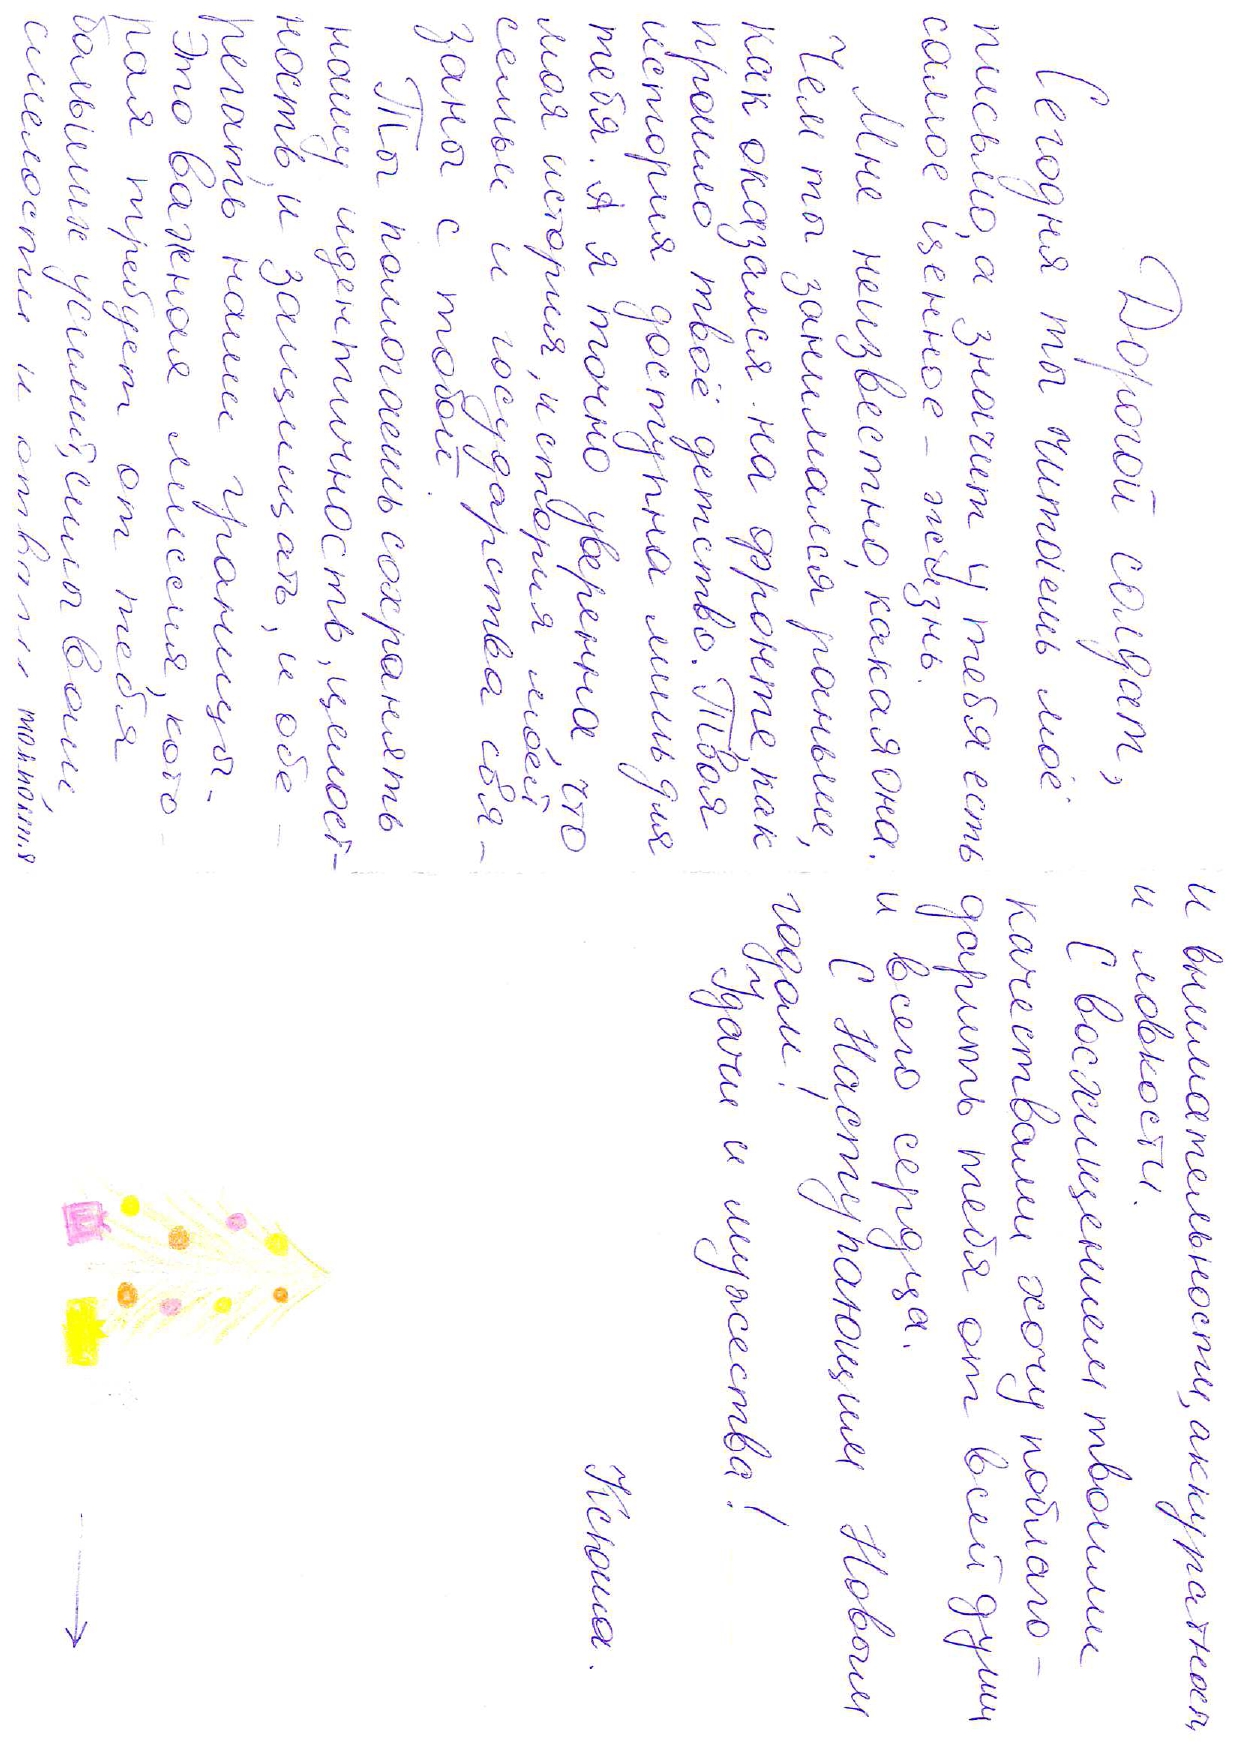 Дорогой солдат,
Сегодня ты читаешь моё
письмо, а значит у тебя есть
самое ценное - жизнь.
Мне неизвестно, какая она.
Чем ты занимался раньше,
как оказался на фронте, как
прошло твоё детство. Твоя
история доступна лишь для
тебя. А я точно уверенна, что
моя история, история моей
семьи и государства свя-
заны с тобой.
Ты помогаешь сохранять
нашу идентичность, целост-
ность, и защищать, и обе-
регать наши границы.
Это важная миссия, кото-
рая требует от тебя
больших усилий, силы воли,
смелости и отваги
и внимательности, аккуратности
и ловкости.
С восхищением твоими
качествами хочу поблаго-
дарить тебя от всей души
и всего сердца.
С Наступающим Новым
годом!
Удачи и мужества!
Ксюша.